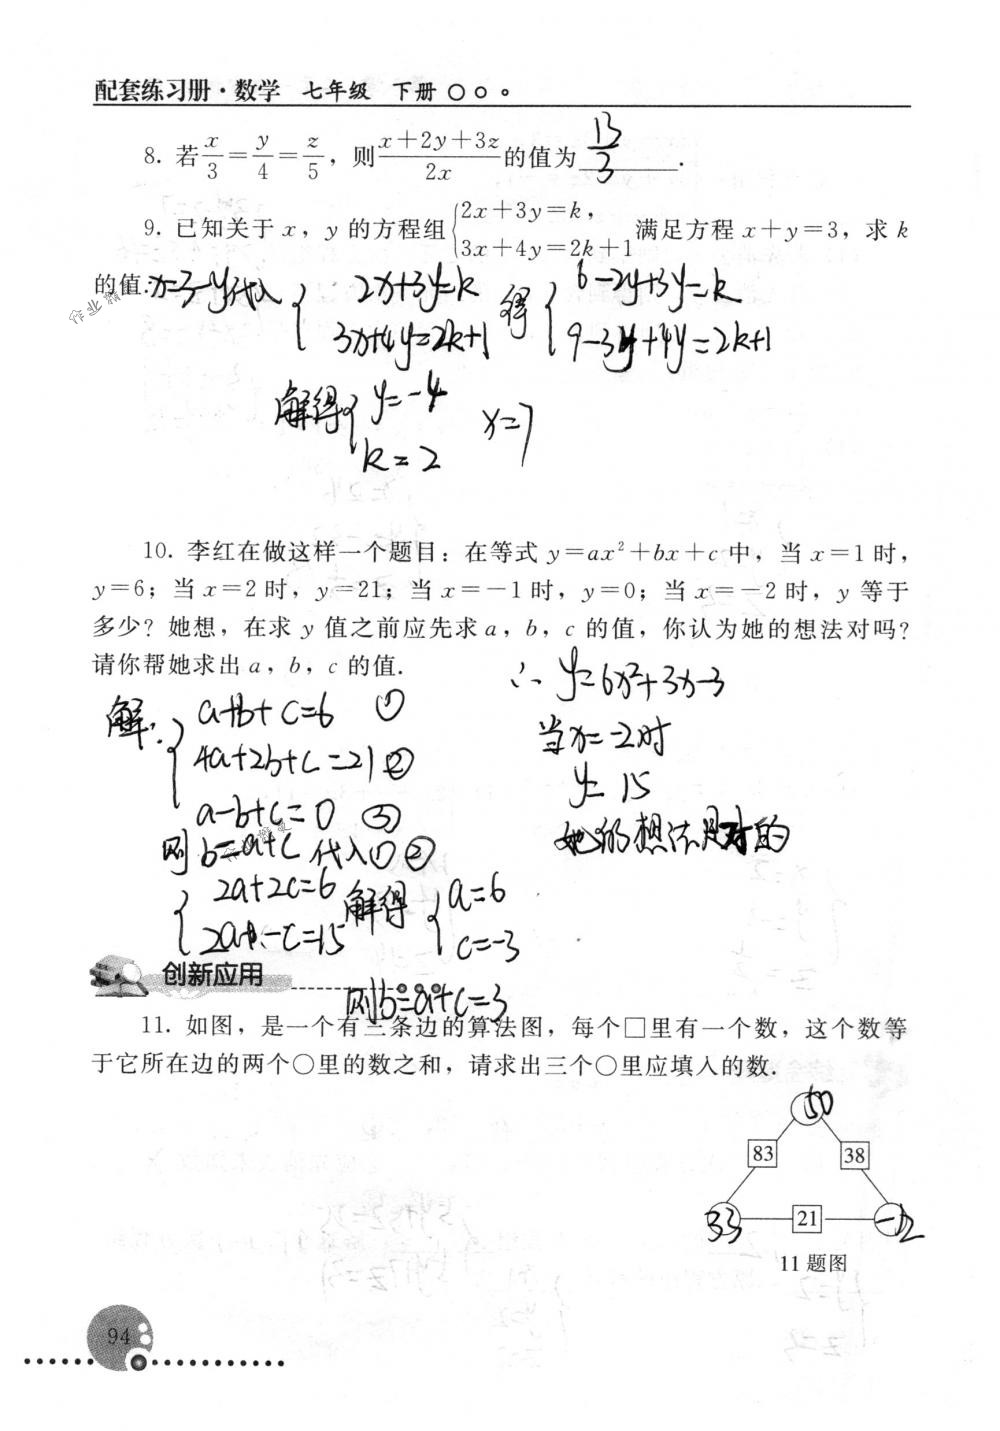 配套练习册·数学 七年级 下册
8. 若x/3=y/4=z/5，则(x+2y+3z)/2x的值为 13/3 .
9. 已知关于 x，y 的方程组{2x+3y=k，3x+4y=2k+1 满足方程 x+y=3，求 k
的值. x=3-y代入 {2x+3y=k 3x+4y=2k+1 得 {6-2y+3y=k 9-3y+4y=2k+1
解得{y=-4 k=2 x=7
10. 李红在做这样一个题目：在等式 y=ax²+bx+c 中，当 x=1 时，
y=6；当 x=2 时，y=21；当 x=-1 时，y=0；当 x=-2 时，y 等于
多少？她想，在求 y 值之前应先求 a，b，c 的值，你认为她的想法对吗？
请你帮她求出 a，b，c 的值.
解：{a+b+c=6 ①
4a+2b+c=21 ②
a-b+c=0 ③
则 b=a+c 代入①②
{2a+2c=6
2a-c=15
解得 {a=6
c=-3
则b=a+c=3
∴ y=6x²+3x-3
当x=-2时
y=15
她的想法是对的
创新应用
11. 如图，是一个有三条边的算法图，每个□里有一个数，这个数等
于它所在边的两个○里的数之和，请求出三个○里应填入的数.
50
83 38
33 21 -12
11 题图
94